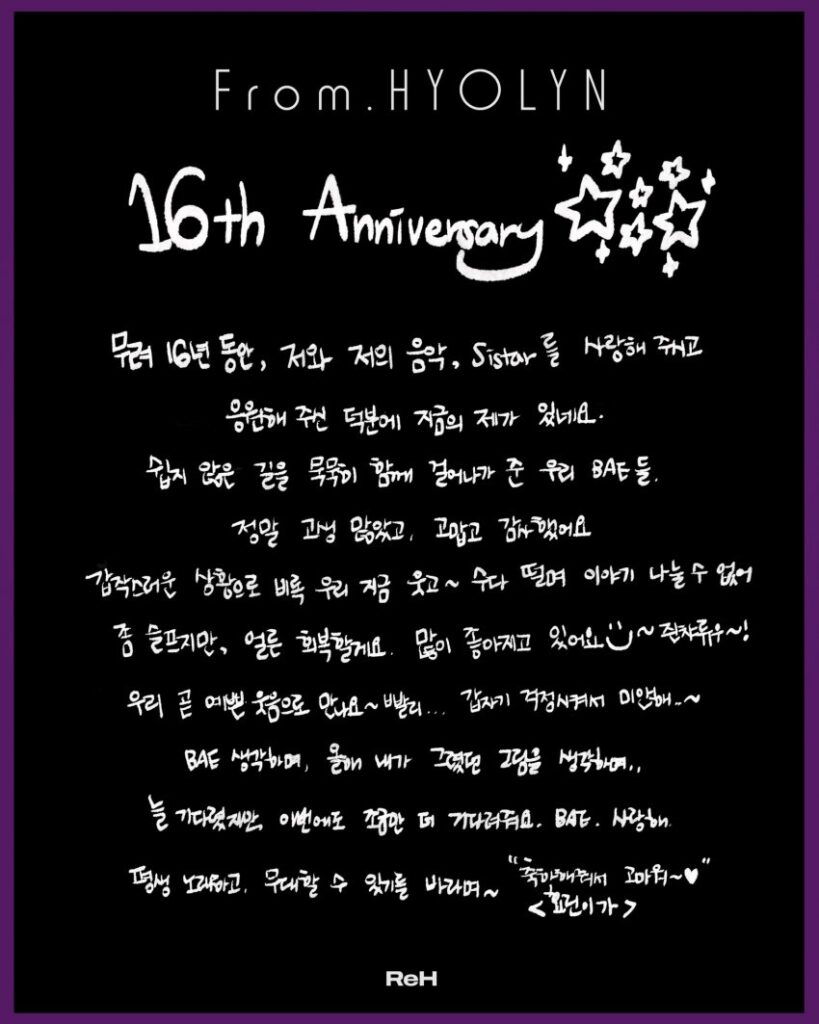 From.HYOLYN
16th Anniversary
무려 16년 동안, 저와 저의 음악, Sistar를 사랑해 주시고
응원해 주신 덕분에 지금의 제가 있네요.
쉽지 않은 길을 묵묵히 함께 걸어나가 준 우리 BAE들.
정말 고생 많았고, 고맙고 감사했어요
갑작스러운 상황으로 비록 우리 지금 웃고~ 수다 떨며 이야기 나눌 수 없어
좀 슬프지만, 얼른 회복할게요. 많이 좋아지고 있어요 ~ 괜챠류우~!
우리 곧 예쁜 웃음으로 만나요~ 빠빨리... 갑자기 걱정시켜서 미안해..~
BAE 생각하며, 올해 내가 그렸던 그림을 생각하며..
늘 기다렸지만, 이번에도 조금만 더 기다려줘요. BAE. 사랑해.
평생 노래하고, 무대할 수 있기를 바라며~ "축하해줘서 고마워~♥"
<효린이가>
ReH